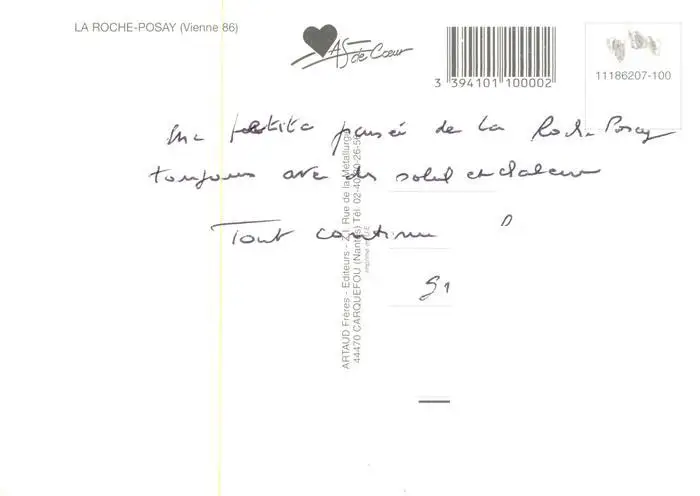 LA ROCHE-POSAY (Vienne 86)
AS de Cœur
3 394101 100002
11186207-100
petite pensée de La Roche Posay
toujours avec du soleil et chaleur
Tout continue
ARTAUD Frères - Editeurs - Z.I. Rue de la Métallurgie
44470 CARQUEFOU (Nantes) Tél. 02-40-